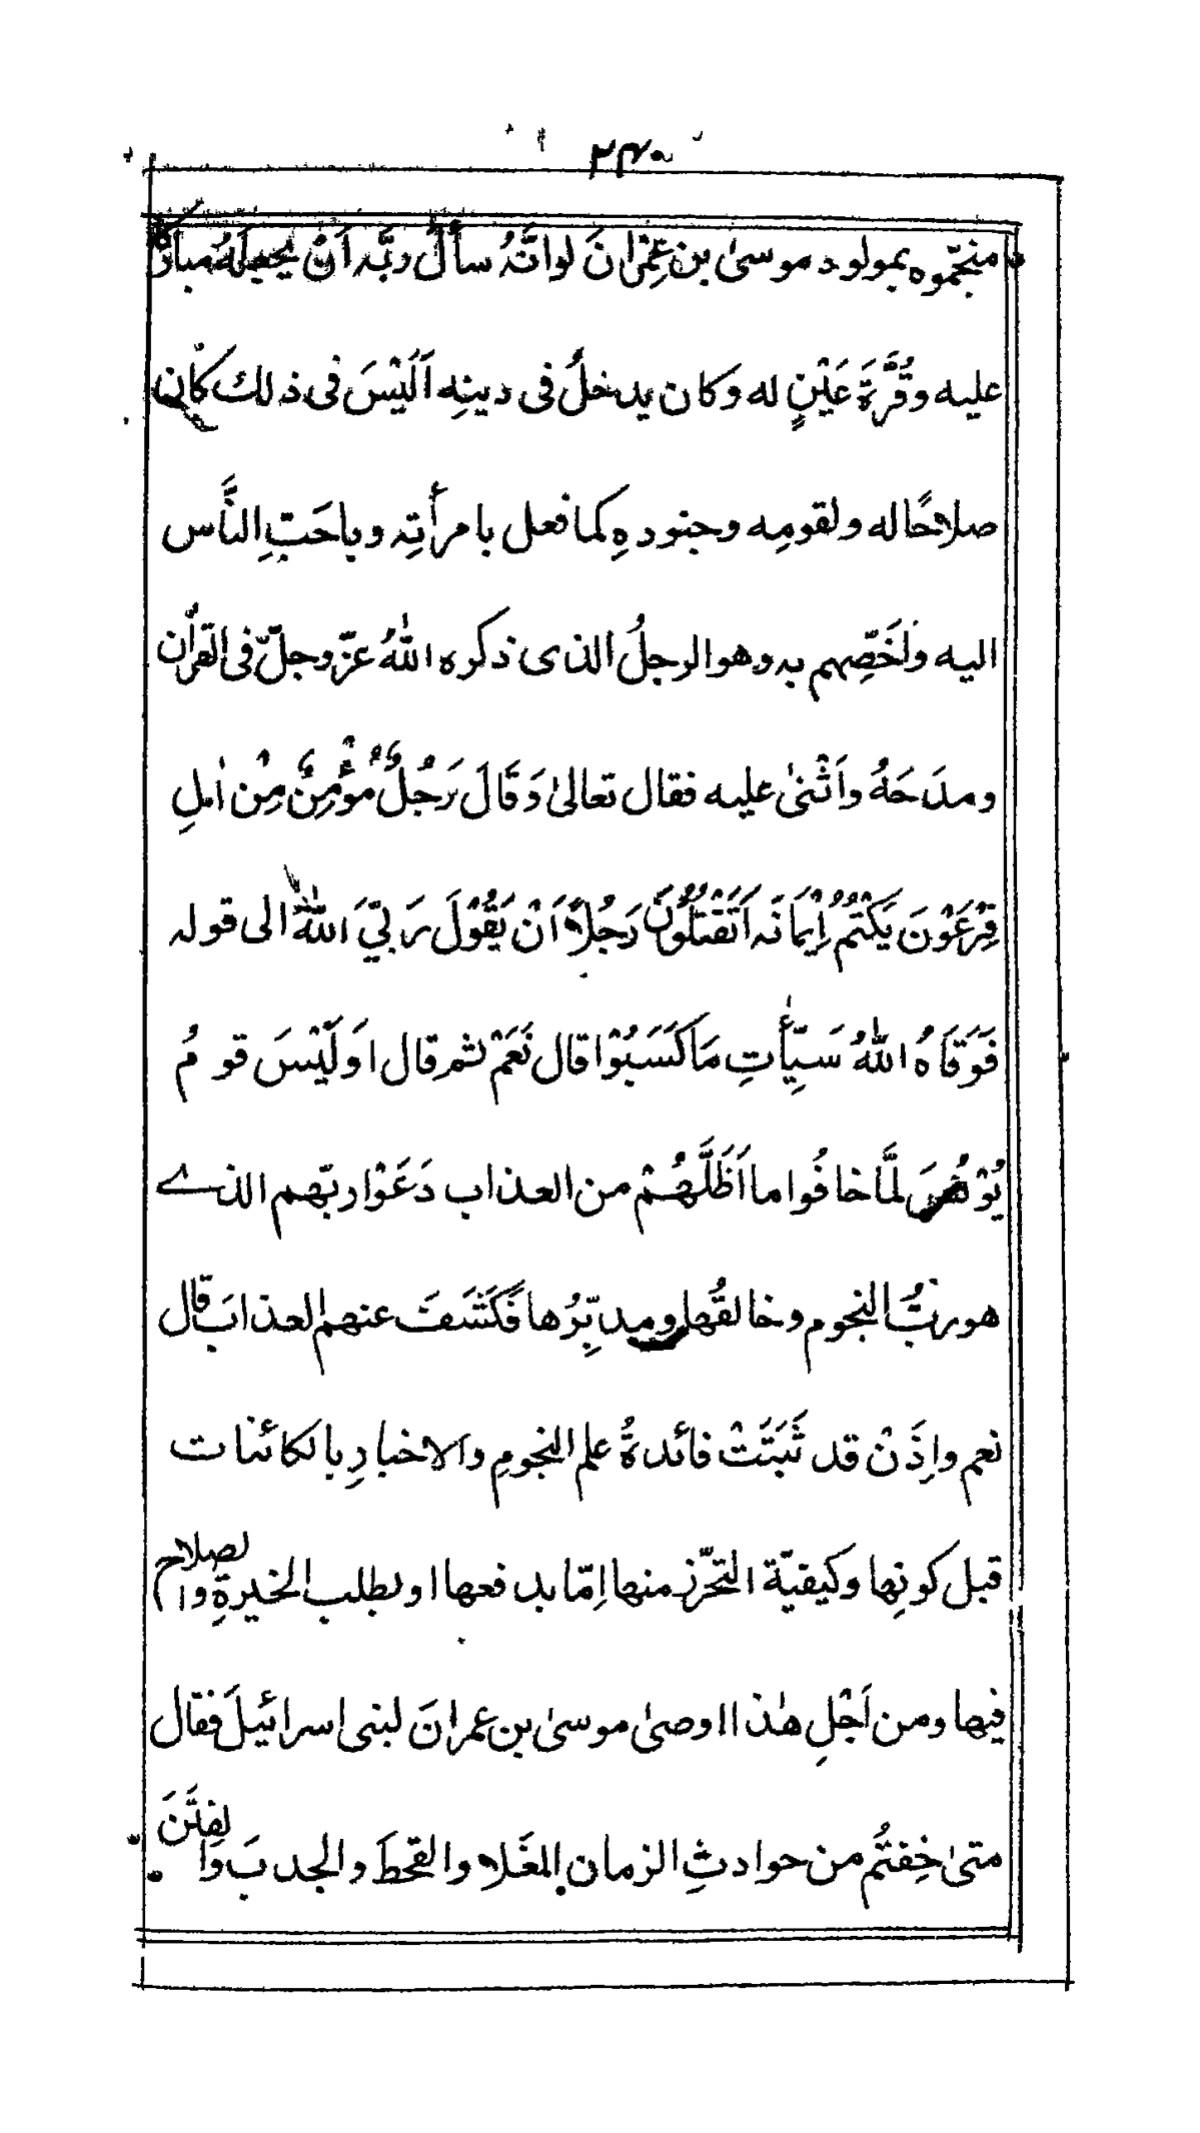 ٢٤٠
منجّموه بمولود موسىٰ بن عِمْرانَ لو اَنَّهُ سأَلَ ربَّه اَنْ يَجعلَهُ مباركًا
عليه وقُرَّةَ عَيْنٍ له وكان يدخلُ فى دينِه اَلَيْسَ فى ذلك كان
صلاحًا له ولقومِه وجنودهِ كما فعل بامرأَتِه وباحَبِّ النَّاس
اليه واَخَصِّهم به وهو الرجلُ الذى ذكره اللّٰهُ عزّ وجلّ فى القرآن
ومدَحَهُ واَثْنىٰ عليه فقال تعالىٰ وَقَالَ رَجُلٌ مُؤْمِنٌ مِنْ اٰلِ
فِرْعَوْنَ يَكْتُمُ اِيْمَانَه اَتَقْتُلُوْنَ رَجُلًا اَنْ يَقُوْلَ رَبِّيَ اللّٰهُ الى قوله
فَوَقَاهُ اللّٰهُ سَيِّأٰتِ مَا كَسَبُوْا قال نَعَمْ ثم قال اَوَلَيْسَ قومُ
يُوْنُسَ لمَّا خافُوا ما اَظَلَّهُمْ من العذاب دَعَوْا ربّهم الذے
هو ربُّ النجوم وخالقُها ومدبِّرُها فَكَشَفَ عنهم العذابَ قال
نعم واِذَنْ قد ثَبَتَتْ فائدةُ علم النجومِ والاخبارِ بالكائنات
قبل كونِها وكيفيّة التحرّز منها اِمّا بدفعها او بطلب الخيرةِ والصلاح
فيها ومن اَجْلِ هٰذا اوصىٰ موسىٰ بن عمرانَ لبنى اسرائيلَ فقال
متىٰ خِفتُم من حوادثِ الزمان الغَلا والقحطَ والجدبَ والفِتَنَ